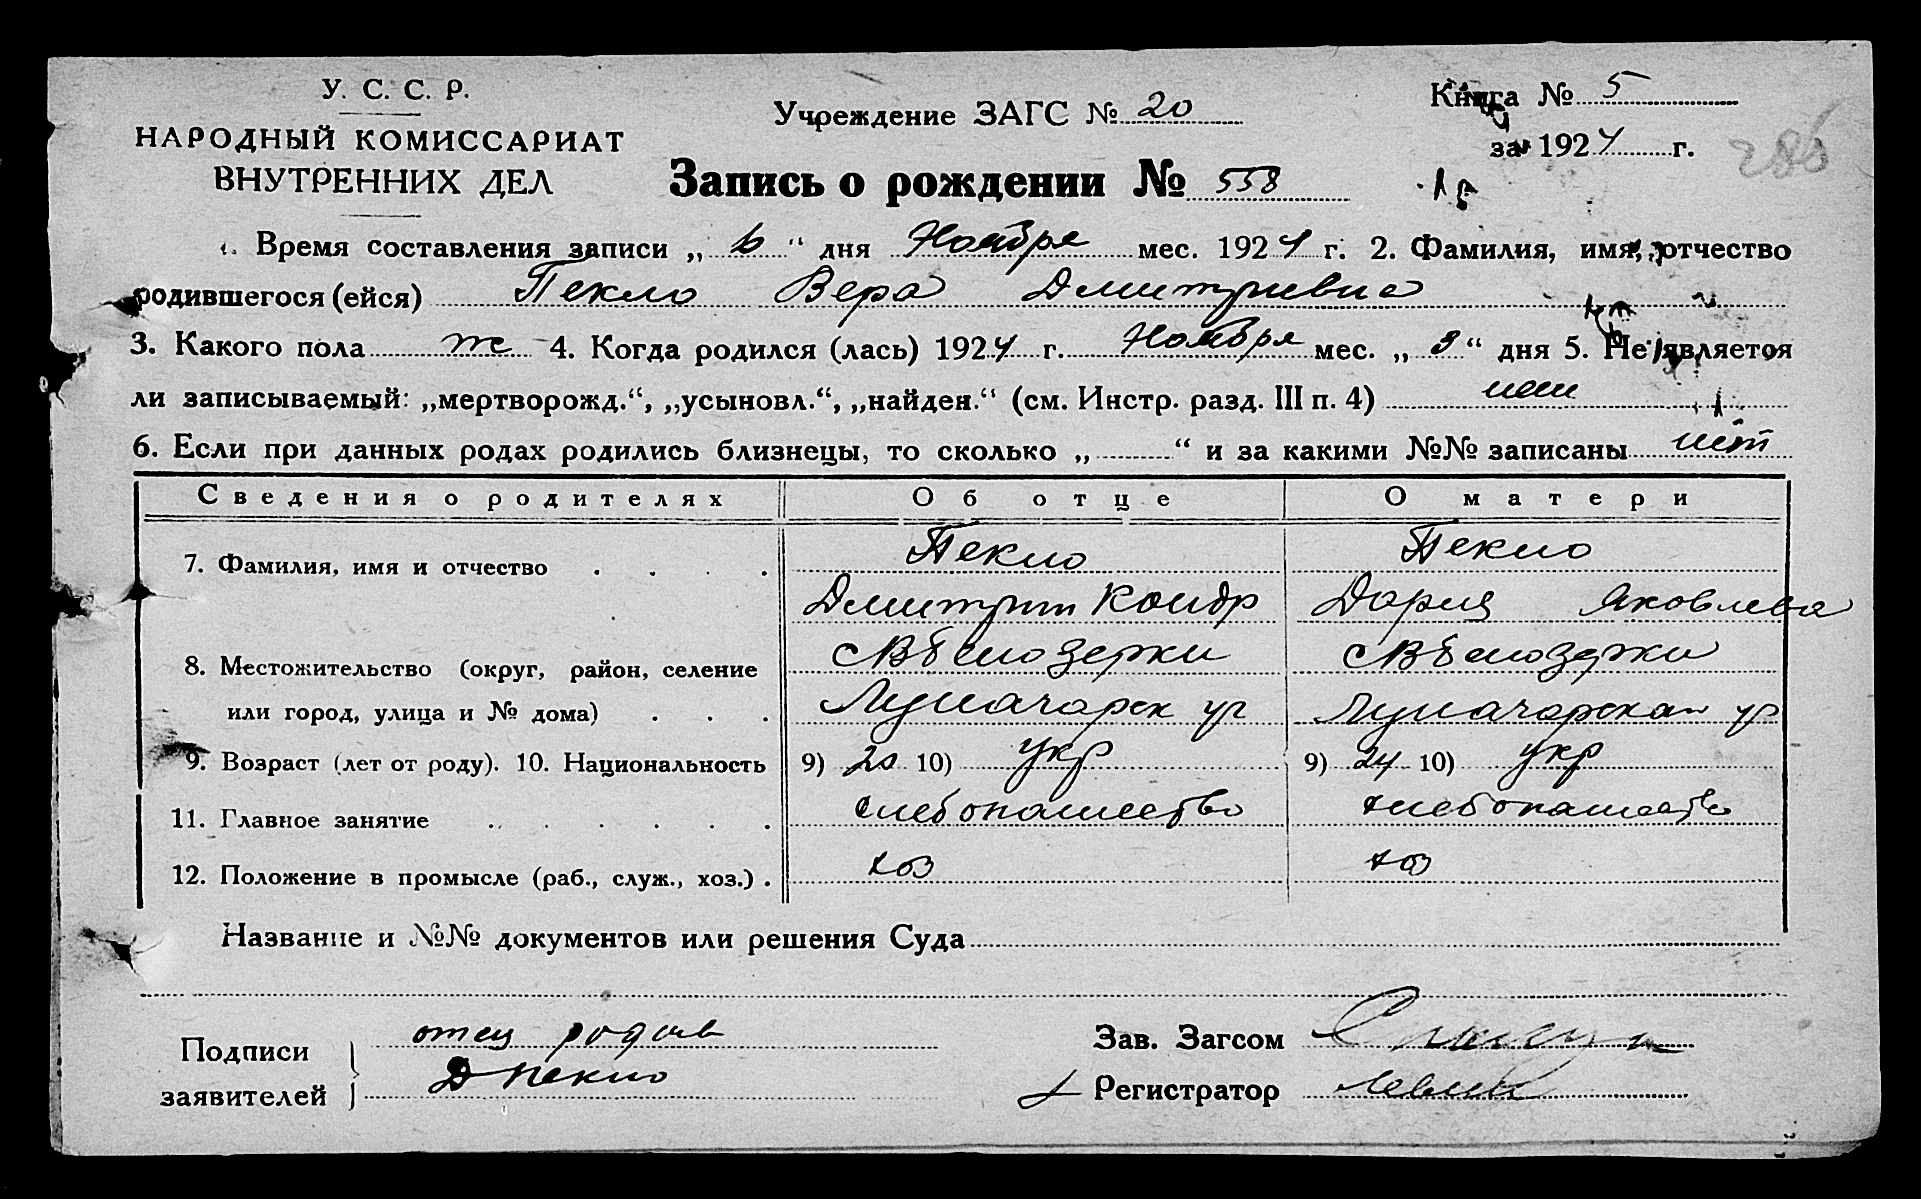 У. С. С. Р.
НАРОДНЫЙ КОМИССАРИАТ
ВНУТРЕННИХ ДЕЛ
Учреждение ЗАГС № 20
Книга № 5
за 1924 г.
286
Запись о рождении № 558
1. Время составления записи „ 10 “ дня Ноября мес. 1924 г. 2. Фамилия, имя, отчество
родившегося (ейся) Пекло Вера Дмитриевна
3. Какого пола ж 4. Когда родился (лась) 1924 г. Ноября мес. „ 8 “ дня 5. Не является
ли записываемый: „мертворожд.“, „усыновл.“, „найден.“ (см. Инстр. разд. III п. 4)
6. Если при данных родах родились близнецы, то сколько „ “ и за какими №№ записаны нет
Сведения о родителях Об отце О матери
7. Фамилия, имя и отчество Пекло Пекло
Дмитрий Кондр Дария Яковлевна
8. Местожительство (округ, район, селение с Белозерки с Белозерки
или город, улица и № дома) Луначарск ул Луначарская ул
9. Возраст (лет от роду). 10. Национальность 9) 20 10) укр 9) 24 10) укр
11. Главное занятие хлебопашество хлебопашество
12. Положение в промысле (раб., служ., хоз.) хоз хоз
Название и №№ документов или решения Суда
Подписи заявителей отец
Д Пекло
Зав. Загсом
Регистратор